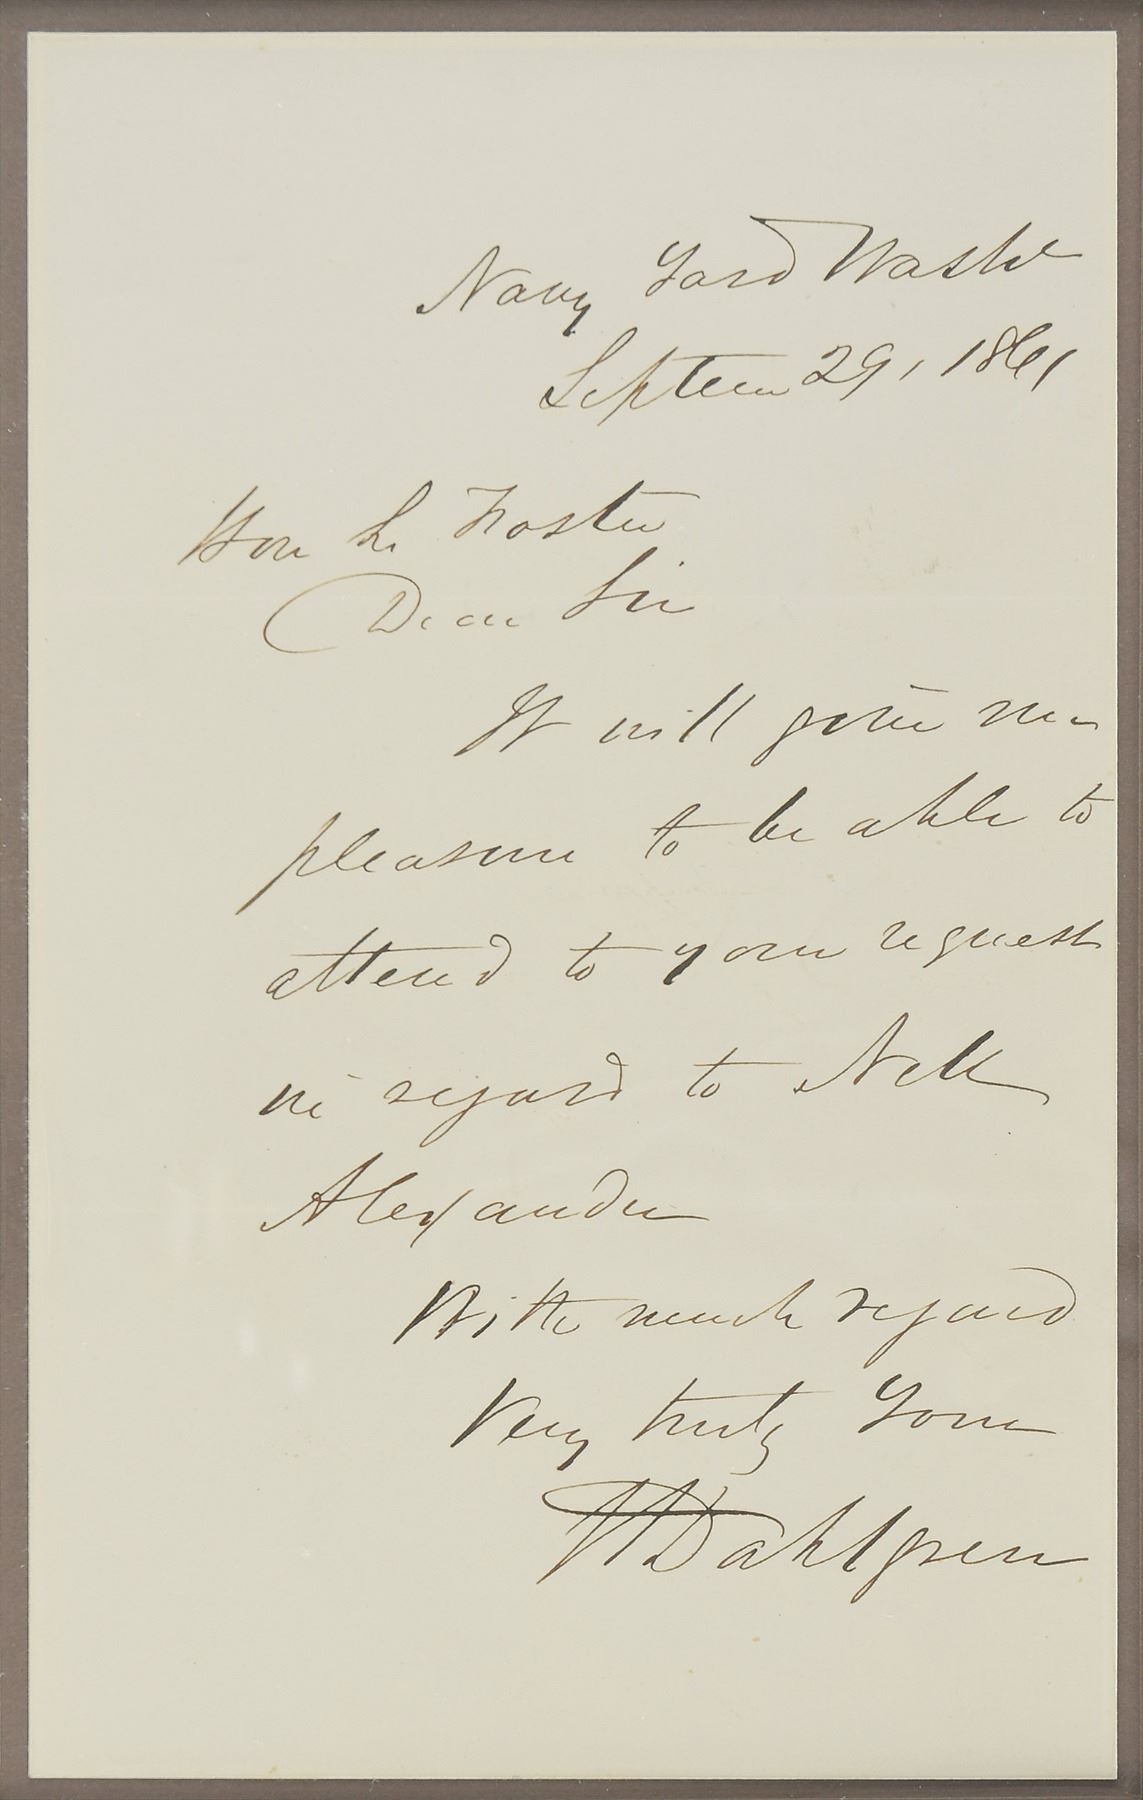 Navy Yard Washn
Septem 29, 1861
Hon L. Foster
Dear Sir
It will give me
pleasure to be able to
attend to your request
in regard to Nell
Alexander
With much regard
Very truly Yours
Dahlgren